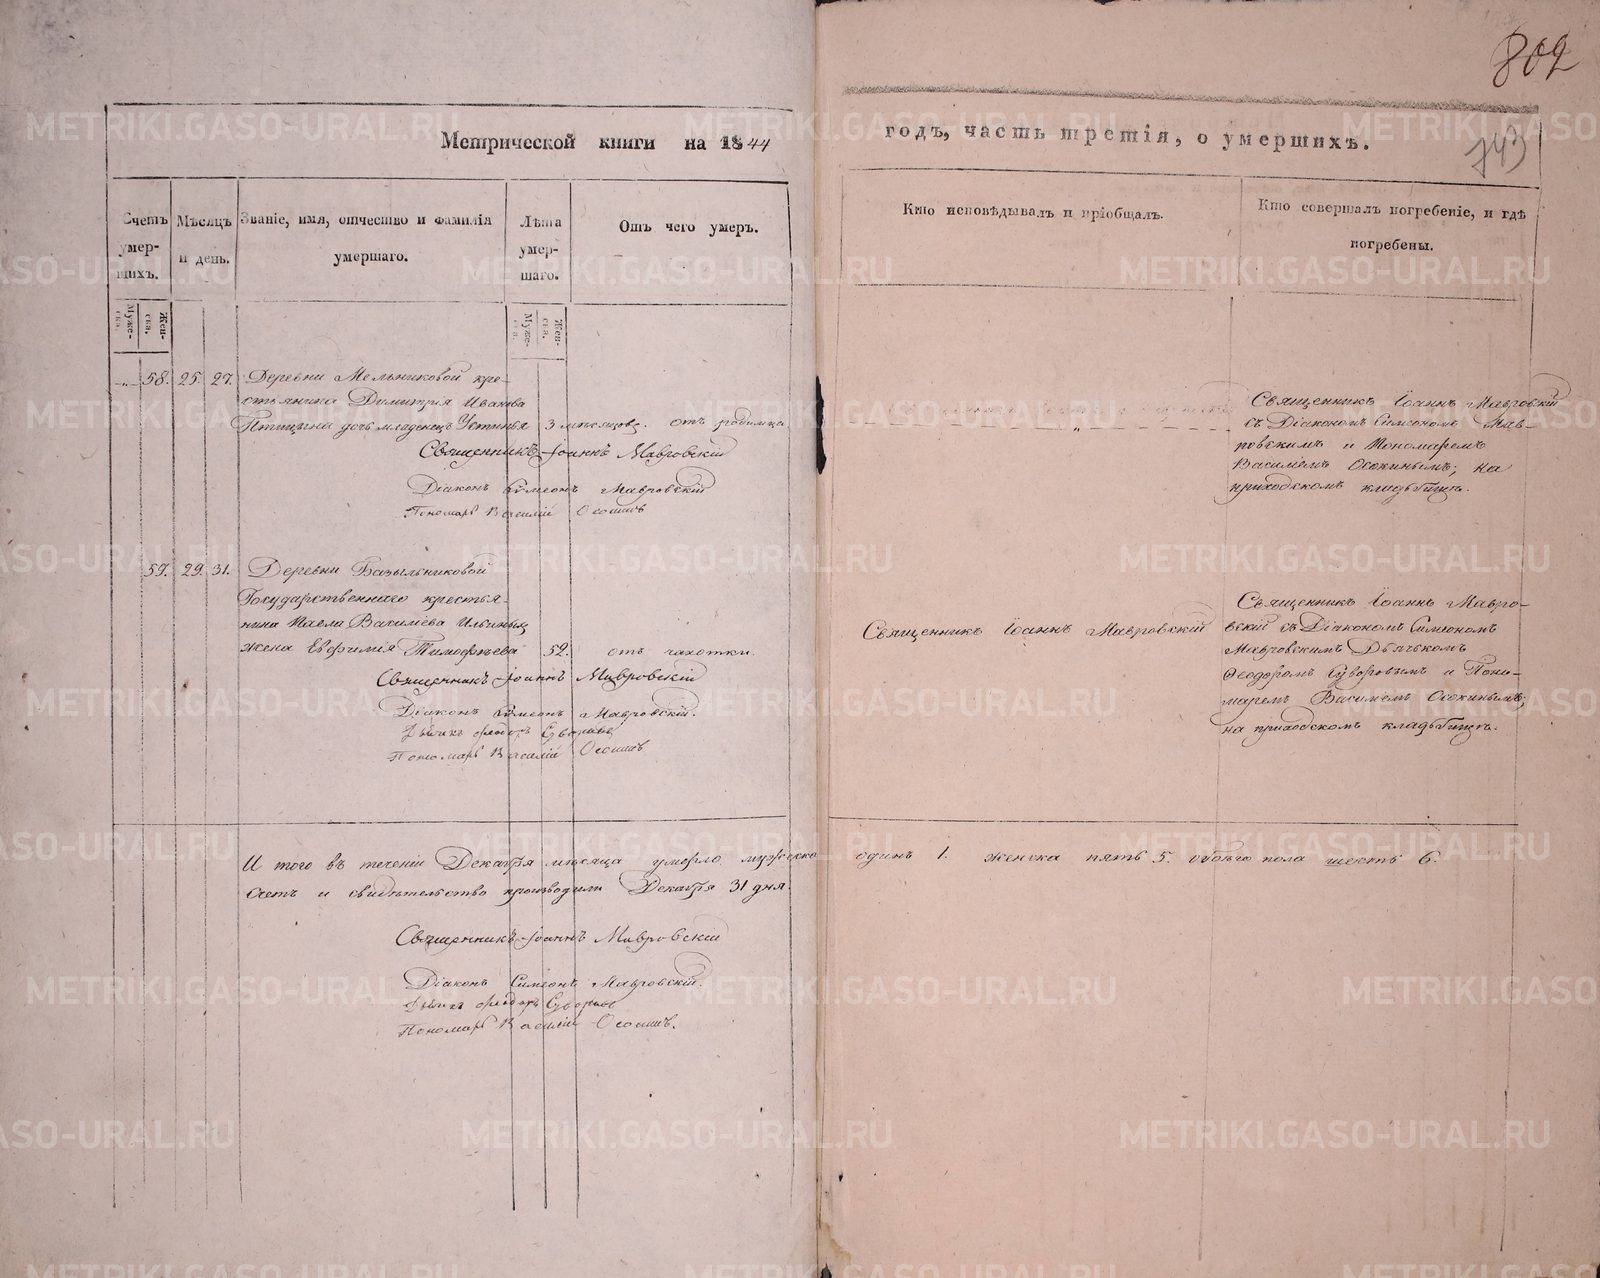 802
743
Метрической книги на 1844
годъ, часть третія, о умершихъ.
Счетъ умер-шихъ.
Мѣсяцъ и день.
Званіе, имя, отчество и фамилія умершаго.
Лѣта умер-шаго.
Отъ чего умеръ.
Кто исповѣдывалъ и пріобщалъ.
Кто совершалъ погребеніе, и гдѣ погребены.
Муже-ска.
Жен-ска.
Муже-ска.
Жен-ска.
58. 25. 27. Деревни Мельниковой кре-
стьянина Димитрія Иванова
Птицына дочь младенецъ Устинья 3 мѣсяцовъ. отъ родимца
Священникъ Іоаннъ Мавровскій
Діаконъ Сѵмеонъ Мавровскій
Пономарь Василій Осокинъ
Священникъ Іоаннъ Мавровскій
съ Діакономъ Симеономъ Мав-
ровскимъ и Пономаремъ
Василіемъ Осокинымъ; на
приходскомъ кладьбищѣ.
59. 29. 31. Деревни Базыльниковой
Государственнаго крестья-
нина Павла Васильева Ильиныхъ
жена Евфимія Тимофѣева 52. отъ чахотки.
Священникъ Іоаннъ Мавровскій
Діаконъ Сѵмеонъ Мавровскій.
Дьячекъ Ѳеодоръ Суворовъ
Пономарь Василій Осокинъ
Священникъ Іоаннъ Мавровскій
Священникъ Іоаннъ Мавро-
вскій съ Діакономъ Симеономъ
Мавровскимъ Дьячькомъ
Ѳеодоромъ Суворовымъ и Поно-
маремъ Василіемъ Осокинымъ;
на приходскомъ кладьбищѣ.
И того въ теченіи Декабря мѣсяца умерло мужеска одинъ 1. женска пять 5. обоего пола шесть 6.
Счетъ и свидѣтельство производили Декабря 31 дня.
Священникъ Іоаннъ Мавровскій
Діаконъ Симеонъ Мавровскій.
Дьячекъ Ѳеодоръ Суворовъ
Пономарь Василій Осокинъ.
METRIKI.GASO-URAL.RU